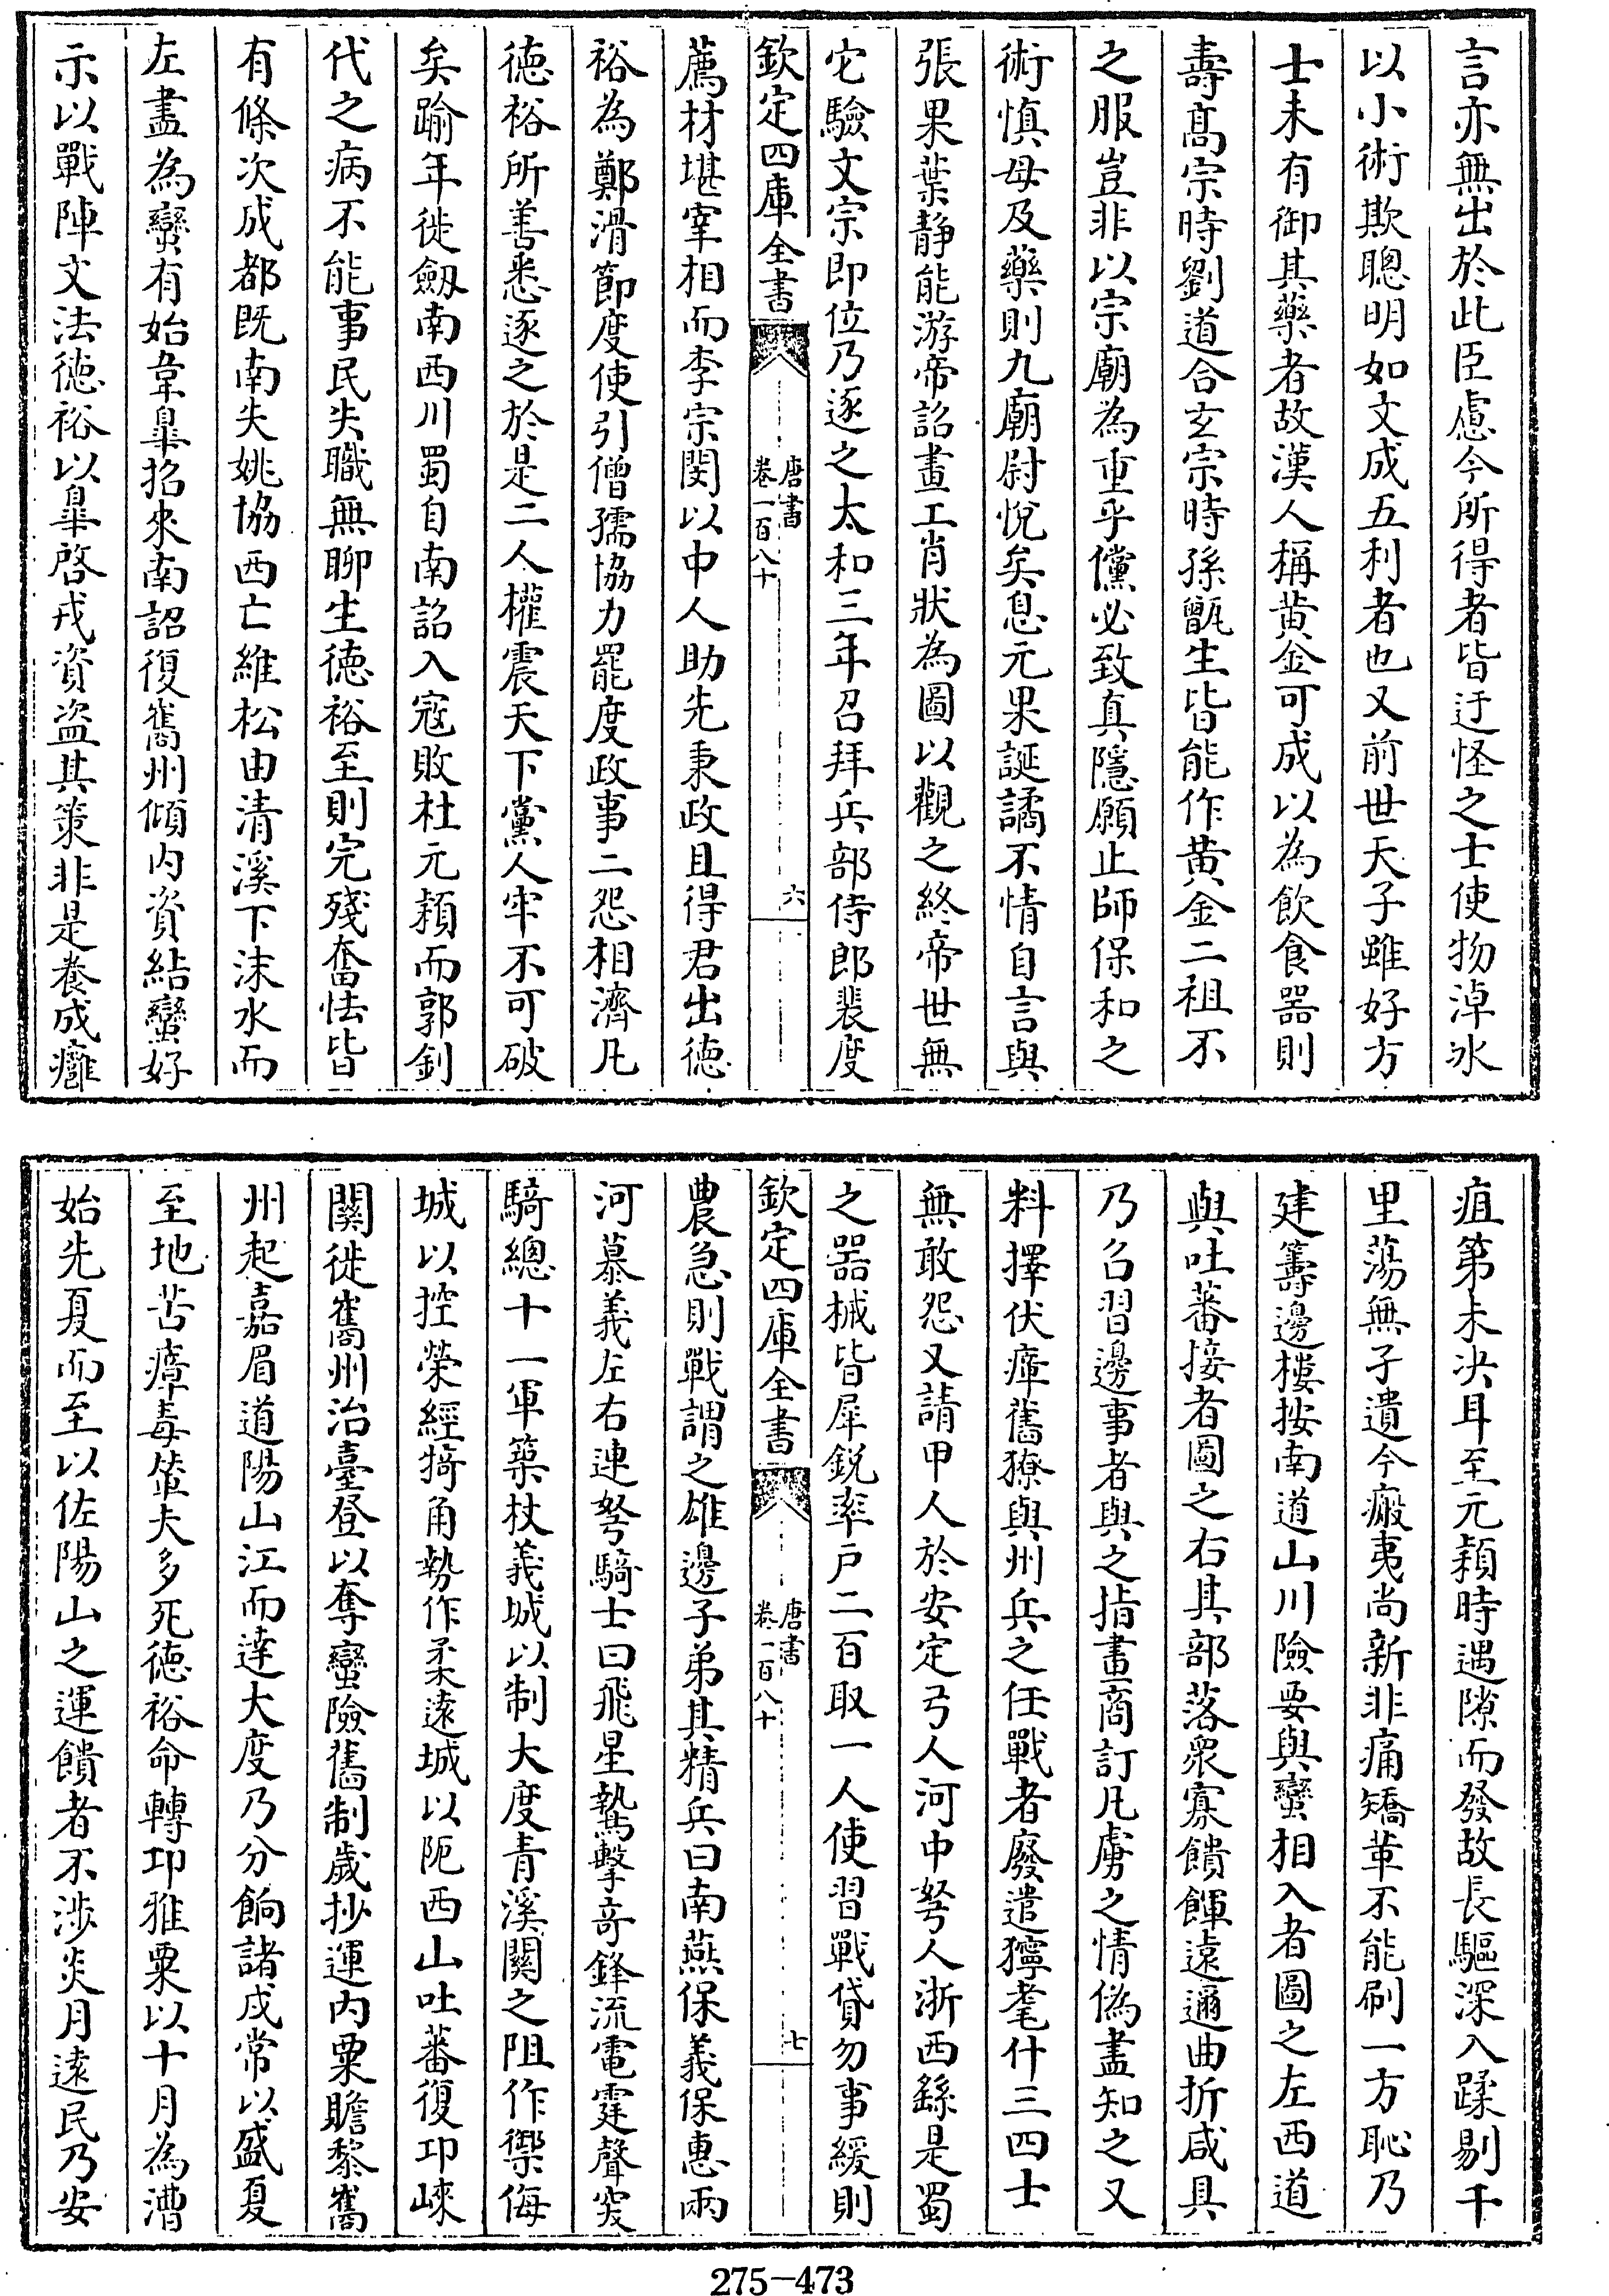 言亦無出於此臣慮今所得者皆迂怪之士使物淖冰
以小術欺聰明如文成五利者也又前世天子雖好方
士未有御其藥者故漢人稱黄金可成以為飲食器則
壽髙宗時劉道合玄宗時孫甑生皆能作黄金二祖不
之服豈非以宗廟為重乎儻必致真隱願止師保和之
術慎毋及藥則九廟尉悅矣息元果誕譎不情自言與
張果葉靜能游帝詔畫工肖狀為圖以觀之終帝世無
它驗文宗即位乃逐之太和三年召拜兵部侍郎裴度
欽定四庫全書 唐書卷一百八十 六
薦材堪宰相而李宗閔以中人助先秉政且得君出徳
裕為鄭滑節度使引僧孺協力罷度政事二怨相濟凡
徳裕所善悉逐之於是二人權震天下黨人牢不可破
矣踰年徙劔南西川蜀自南詔入寇敗杜元穎而郭釗
代之病不能事民失職無聊生徳裕至則完殘奮怯皆
有條次成都既南失姚協西亡維松由清溪下沫水而
左盡為蠻有始韋臯招來南詔復巂州傾内資結蠻好
示以戰陣文法徳裕以臯啓戎資盗其策非是養成癰
疽第未決耳至元穎時遇隙而發故長驅深入蹂剔千
里蕩無孑遺今瘢夷尚新非痛矯革不能刷一方恥乃
建籌邊樓按南道山川險要與蠻相入者圖之左西道
與吐蕃接者圖之右其部落衆寡饋餫遠邇曲折咸具
乃召習邊事者與之指畫商訂凡虜之情偽盡知之又
料擇伏瘴舊獠與州兵之任戰者廢遣獰耄什三四士
無敢怨又請甲人於安定弓人河中弩人浙西繇是蜀
之器械皆犀鋭率户二百取一人使習戰貸勿事緩則
欽定四庫全書 唐書卷一百八十 七
農急則戰謂之雄邊子弟其精兵曰南燕保義保惠兩
河慕義左右連弩騎士曰飛星鷙擊竒鋒流電霆聲突
騎總十一軍築杖義城以制大度青溪關之阻作禦侮
城以控榮經犄角勢作柔遠城以阨西山吐蕃復卭崍
關徙巂州治臺登以奪蠻險舊制歳抄運内粟贍黎巂
州起嘉眉道陽山江而逹大度乃分餉諸戍常以盛夏
至地苦瘴毒輦夫多死徳裕命轉卭雅粟以十月為漕
始先夏而至以佐陽山之運饋者不涉炎月逺民乃安
275-473